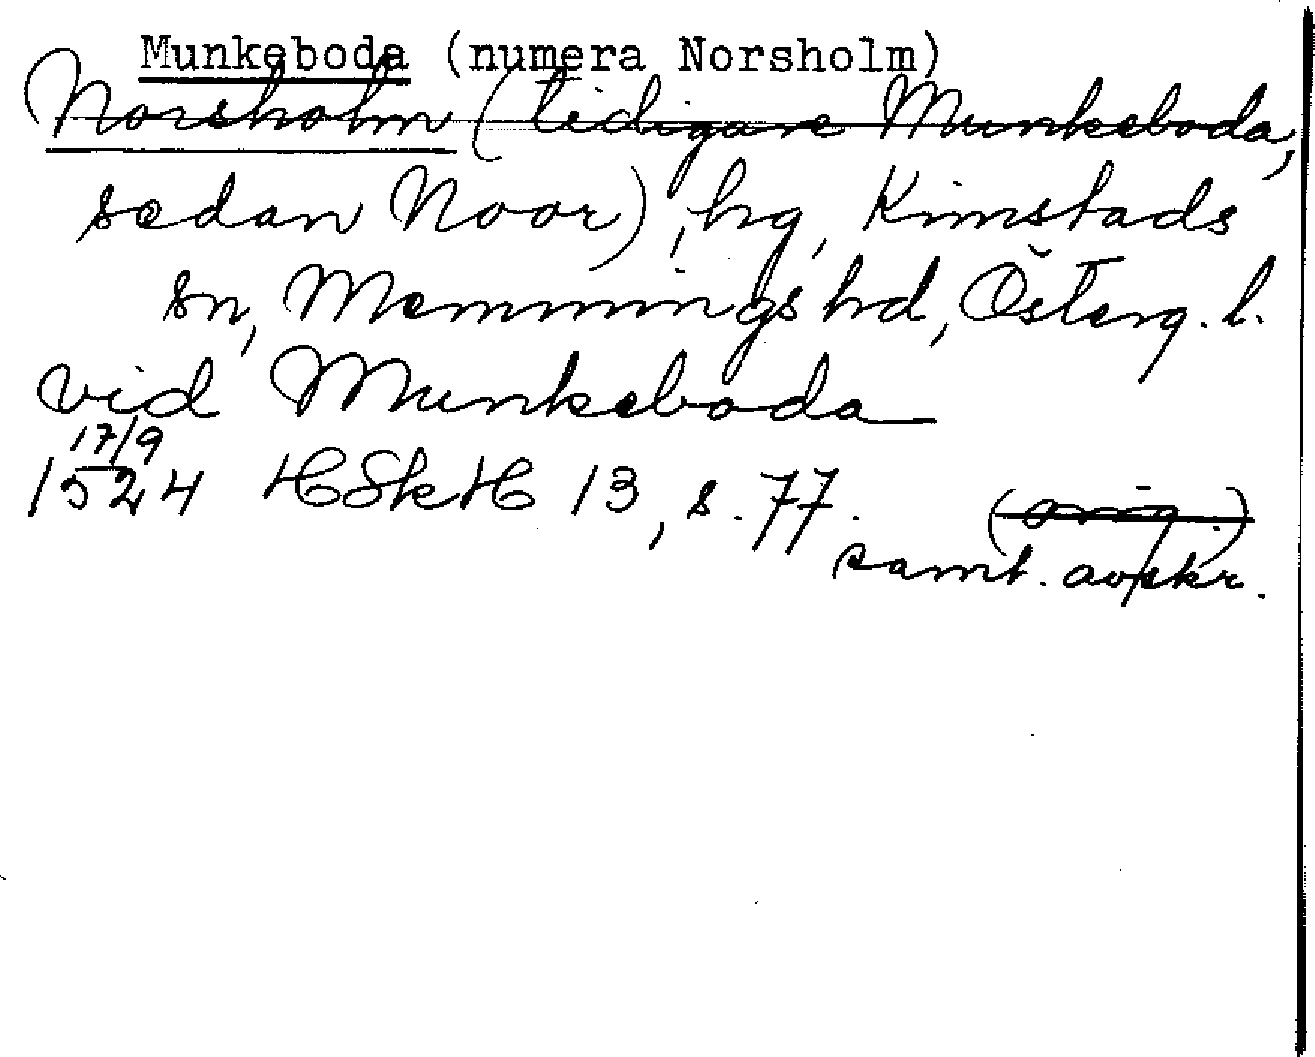 Munkeboda (numera Norsholm)
Norsholm (tidigare Munkeboda,
sedan Noor), hg, Kimstads
sn, Memmings hd, Österg. l.
vid Munkeboda
17/9
1524 HSkH 13, s. 77. (orig.)
samt. avskr.